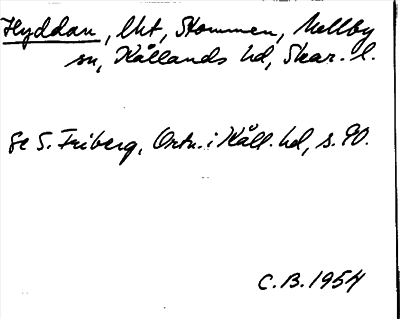 Hyddan, lht, Stommen, Mellby
sn, Kållands hd, Skar. l.
Se S. Friberg, Ortn. i Kåll. hd, s. 90.
C.B. 1954